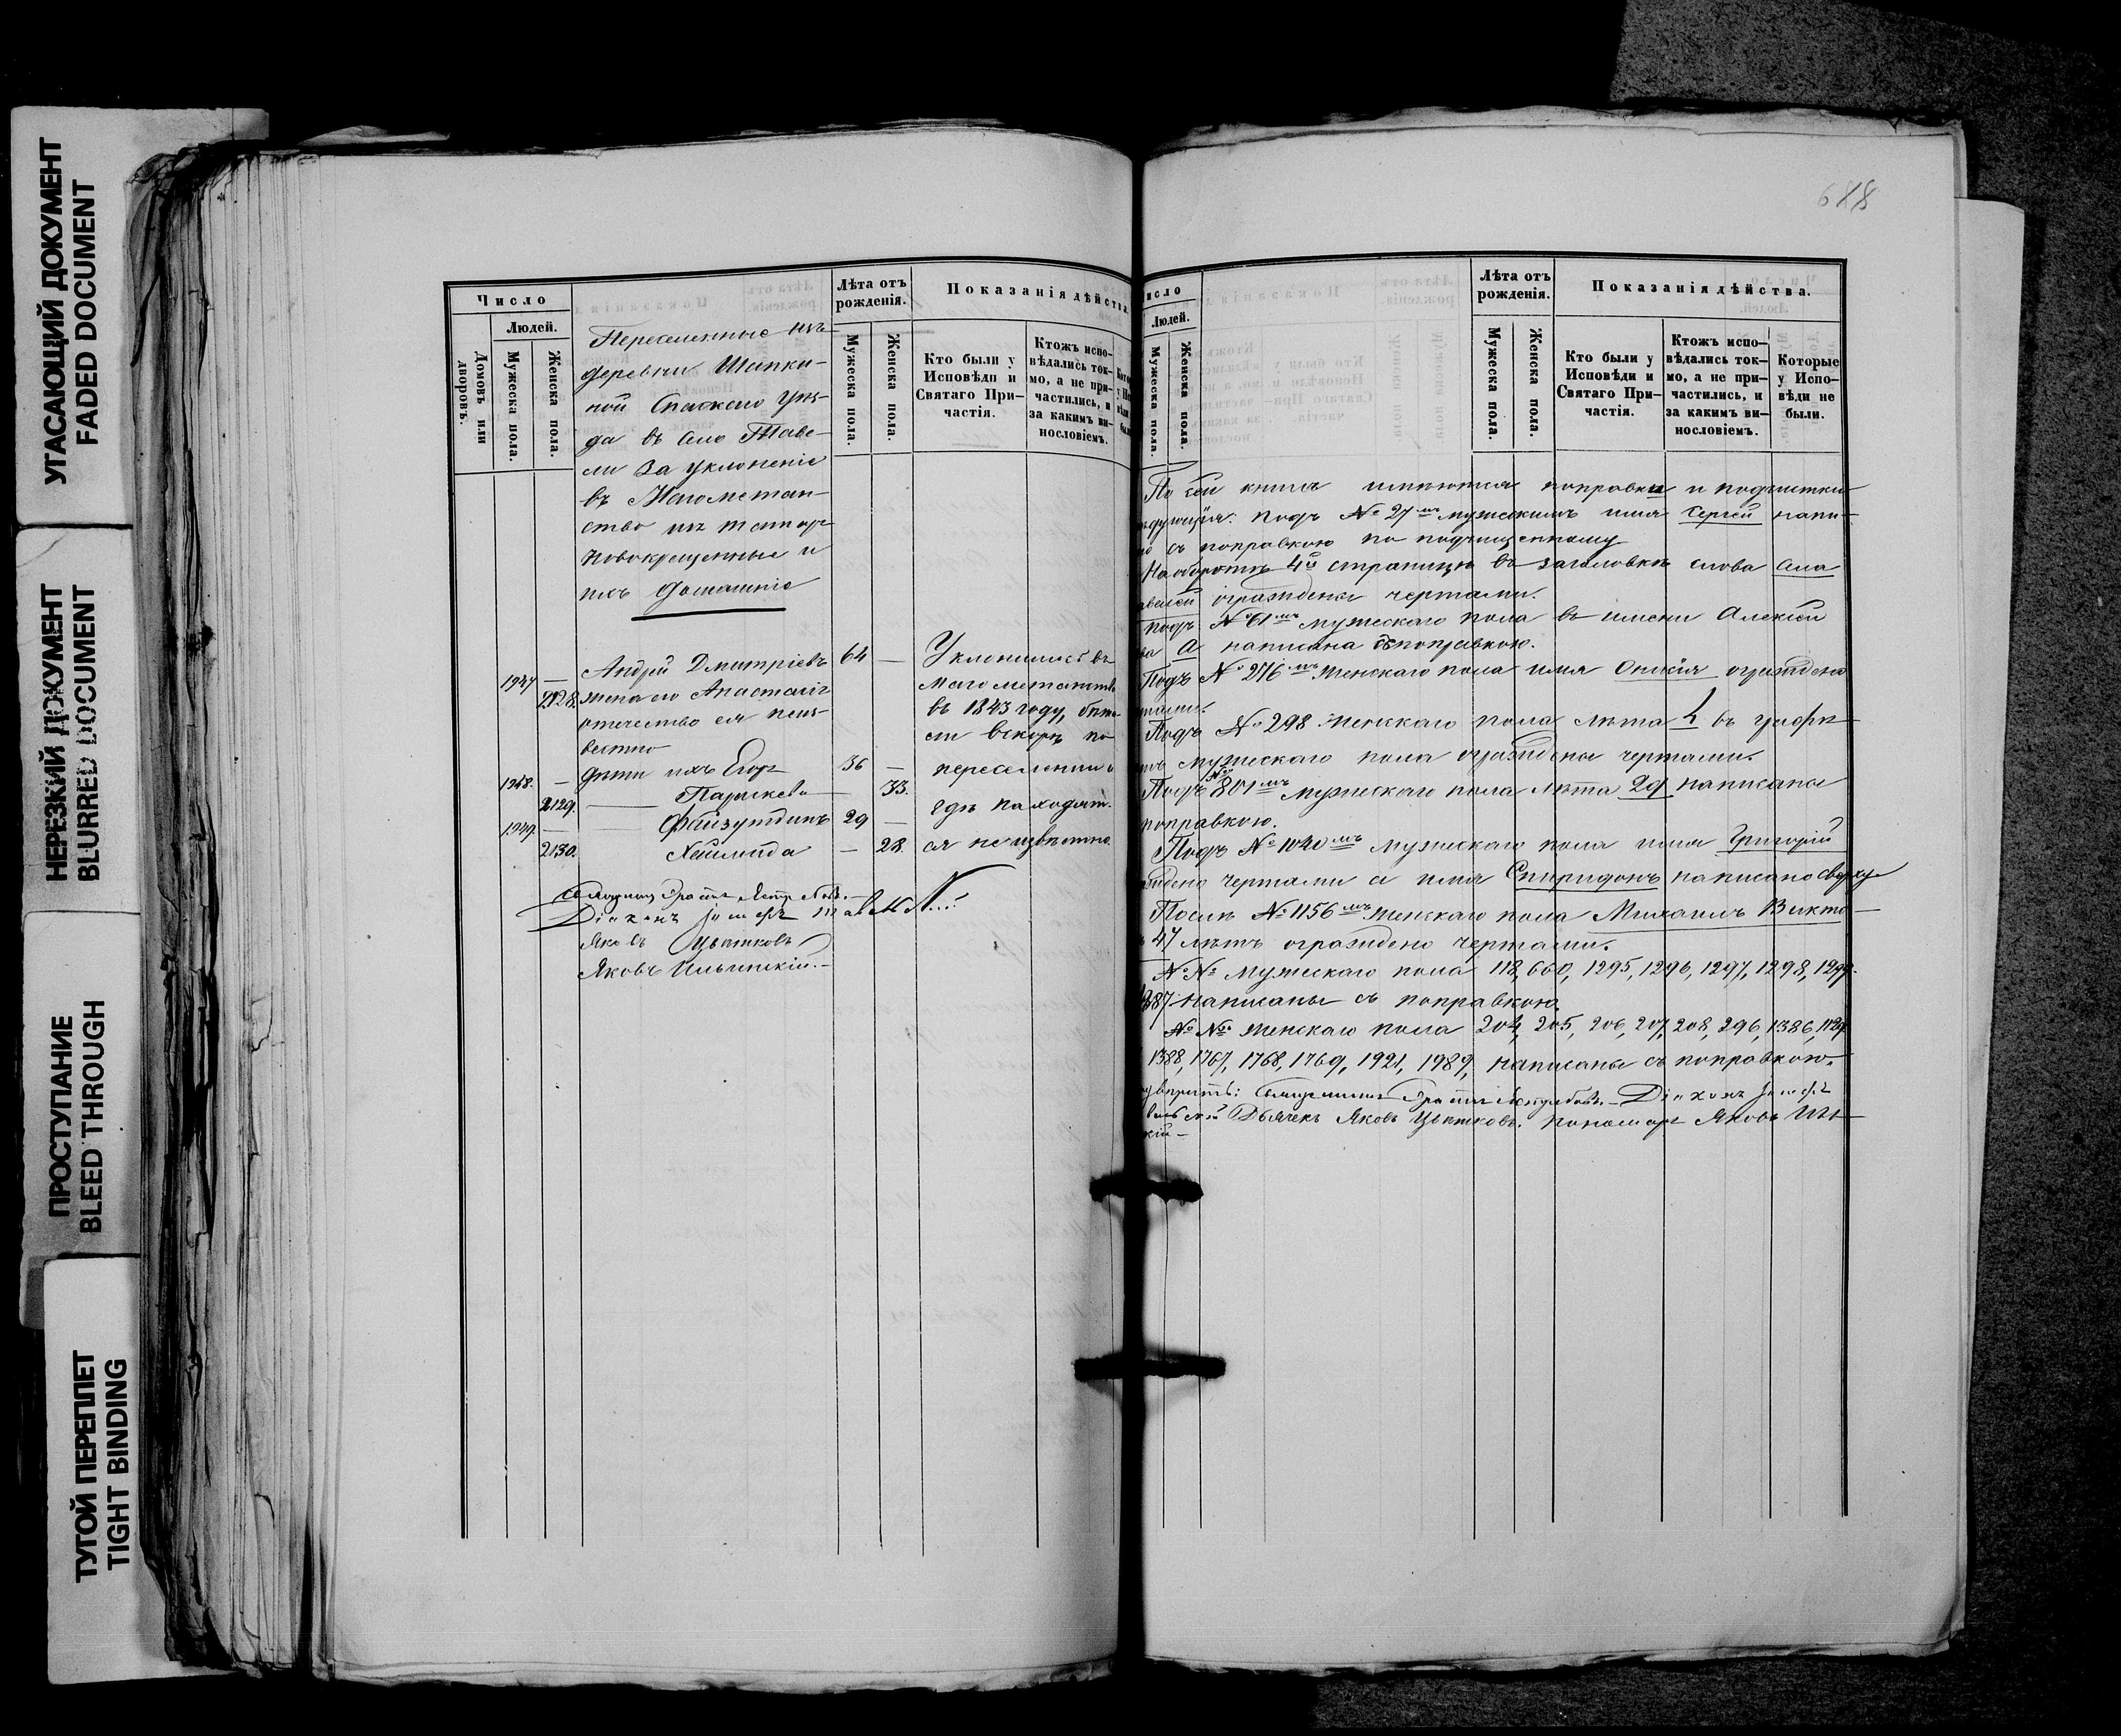 УГАСАЮЩИЙ ДОКУМЕНТ
FADED DOCUMENT
НЕРЕЗКИЙ ДОКУМЕНТ
BLURRED DOCUMENT
ПРОСТУПАНИЕ
BLEED THROUGH
ТУГОЙ ПЕРЕПЛЕТ
TIGHT BINDING
Число
Людей.
Домовъ или дворовъ.
Мужеска пола.
Женска пола.
Лѣта отъ рожденія.
Мужеска пола.
Женска пола.
Показанія дѣйства
Кто были у Исповѣди и Святаго Причастія.
Ктожъ исповѣдались токмо, а не причастились, и за какимъ винословіемъ.
Переселенные изъ
деревни Шапки-
ной Спаскаго уѣз-
да въ село Таве-
ли за уклоненіе
въ Магометан-
ство изъ татаръ
новокрещенные и
ихъ домашніе
1947 — Андрей Дмитріевъ 64 — Уклонились въ
2128. жена его Анастасія Магометанство
отечество ея неиз- въ 1843 году, бѣжа-
вѣстно ли вскорѣ по
1948. — дѣти ихъ Егоръ 36 — переселеніи и
2129. — Параскева — 33. гдѣ находят-
1949. — Файзутдинъ 29 —
2130. — 28. ся неизвѣстно.
Діаконъ
Яковъ Цвѣтковъ
Яковъ Ильинскій.
688
Людей.
Мужеска пола.
Женска пола.
Лѣта отъ рожденія.
Мужеска пола.
Женска пола.
Показанія дѣйства.
Кто были у Исповѣди и Святаго Причастія.
Ктожъ исповѣдались токмо, а не причастились, и за какимъ винословіемъ.
Которые у Исповѣди не были.
По сей книгѣ имѣются поправки и подчистки
подъ № 27мъ мужескимъ имя Сергей напи-
но съ поправкою по подчищенному
На оборотѣ 4й страницы въ заголовкѣ слова села
ограждены чертами.
подъ № 61мъ мужескаго пола въ имени Алексѣй
а написана съ поправкою.
Подъ № 276мъ женскаго пола имя ограждено
Подъ № 298 женскаго пола лѣта въ графѣ
мужескаго пола ограждены чертами.
Подъ № 801мъ мужескаго пола лѣта 29 написаны
поправкою.
Подъ № 1040мъ мужескаго пола имя Григорій
чертами а имя Спиридонъ написано сверху
Послѣ № 1156мъ женскаго пола Михаилъ Викто-
47 лѣтъ ограждено чертами.
№№ Мужескаго пола 118, 660, 1295, 1296, 1297, 1298, 1299
написаны съ поправкою.
№№ женскаго пола 204, 205, 206, 207, 208, 296, 1386,
1388, 1767, 1768, 1769, 1921, 1989, написаны съ поправкою.
Діаконъ
Дьячекъ Яковъ Цвѣтковъ. пономарь Яковъ